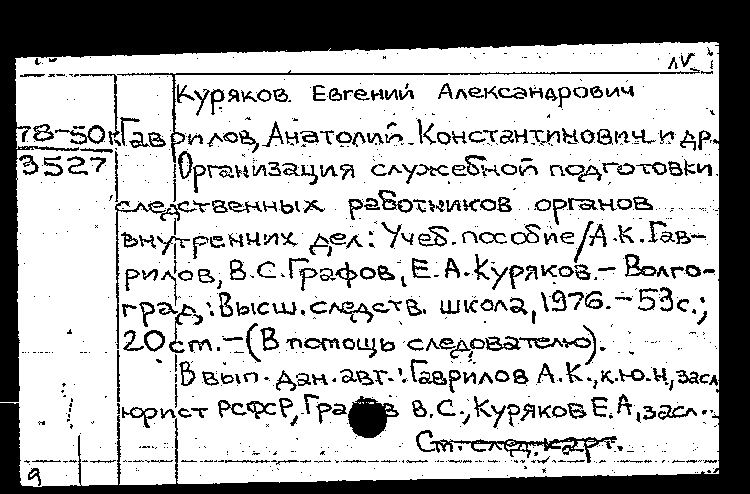 ΛV
Куряков Евгений Александрович
78-50к Гаврилов, Анатолий Константинович и др.
3527 Организация служебной подготовки
следственных работников органов
внутренних дел: Учеб. пособие/А.К.Гав-
рилов, В.С.Графов, Е.А.Куряков.- Волго-
град: Высш. следств. школа, 1976.- 53с.;
20 см.-(В помощь следователю).
В вып. дан. авт.: Гаврилов А.К., к.ю.н, засл
юрист РСФСР, Графов В.С., Куряков Е.А, засл.
См. след. карт.
9